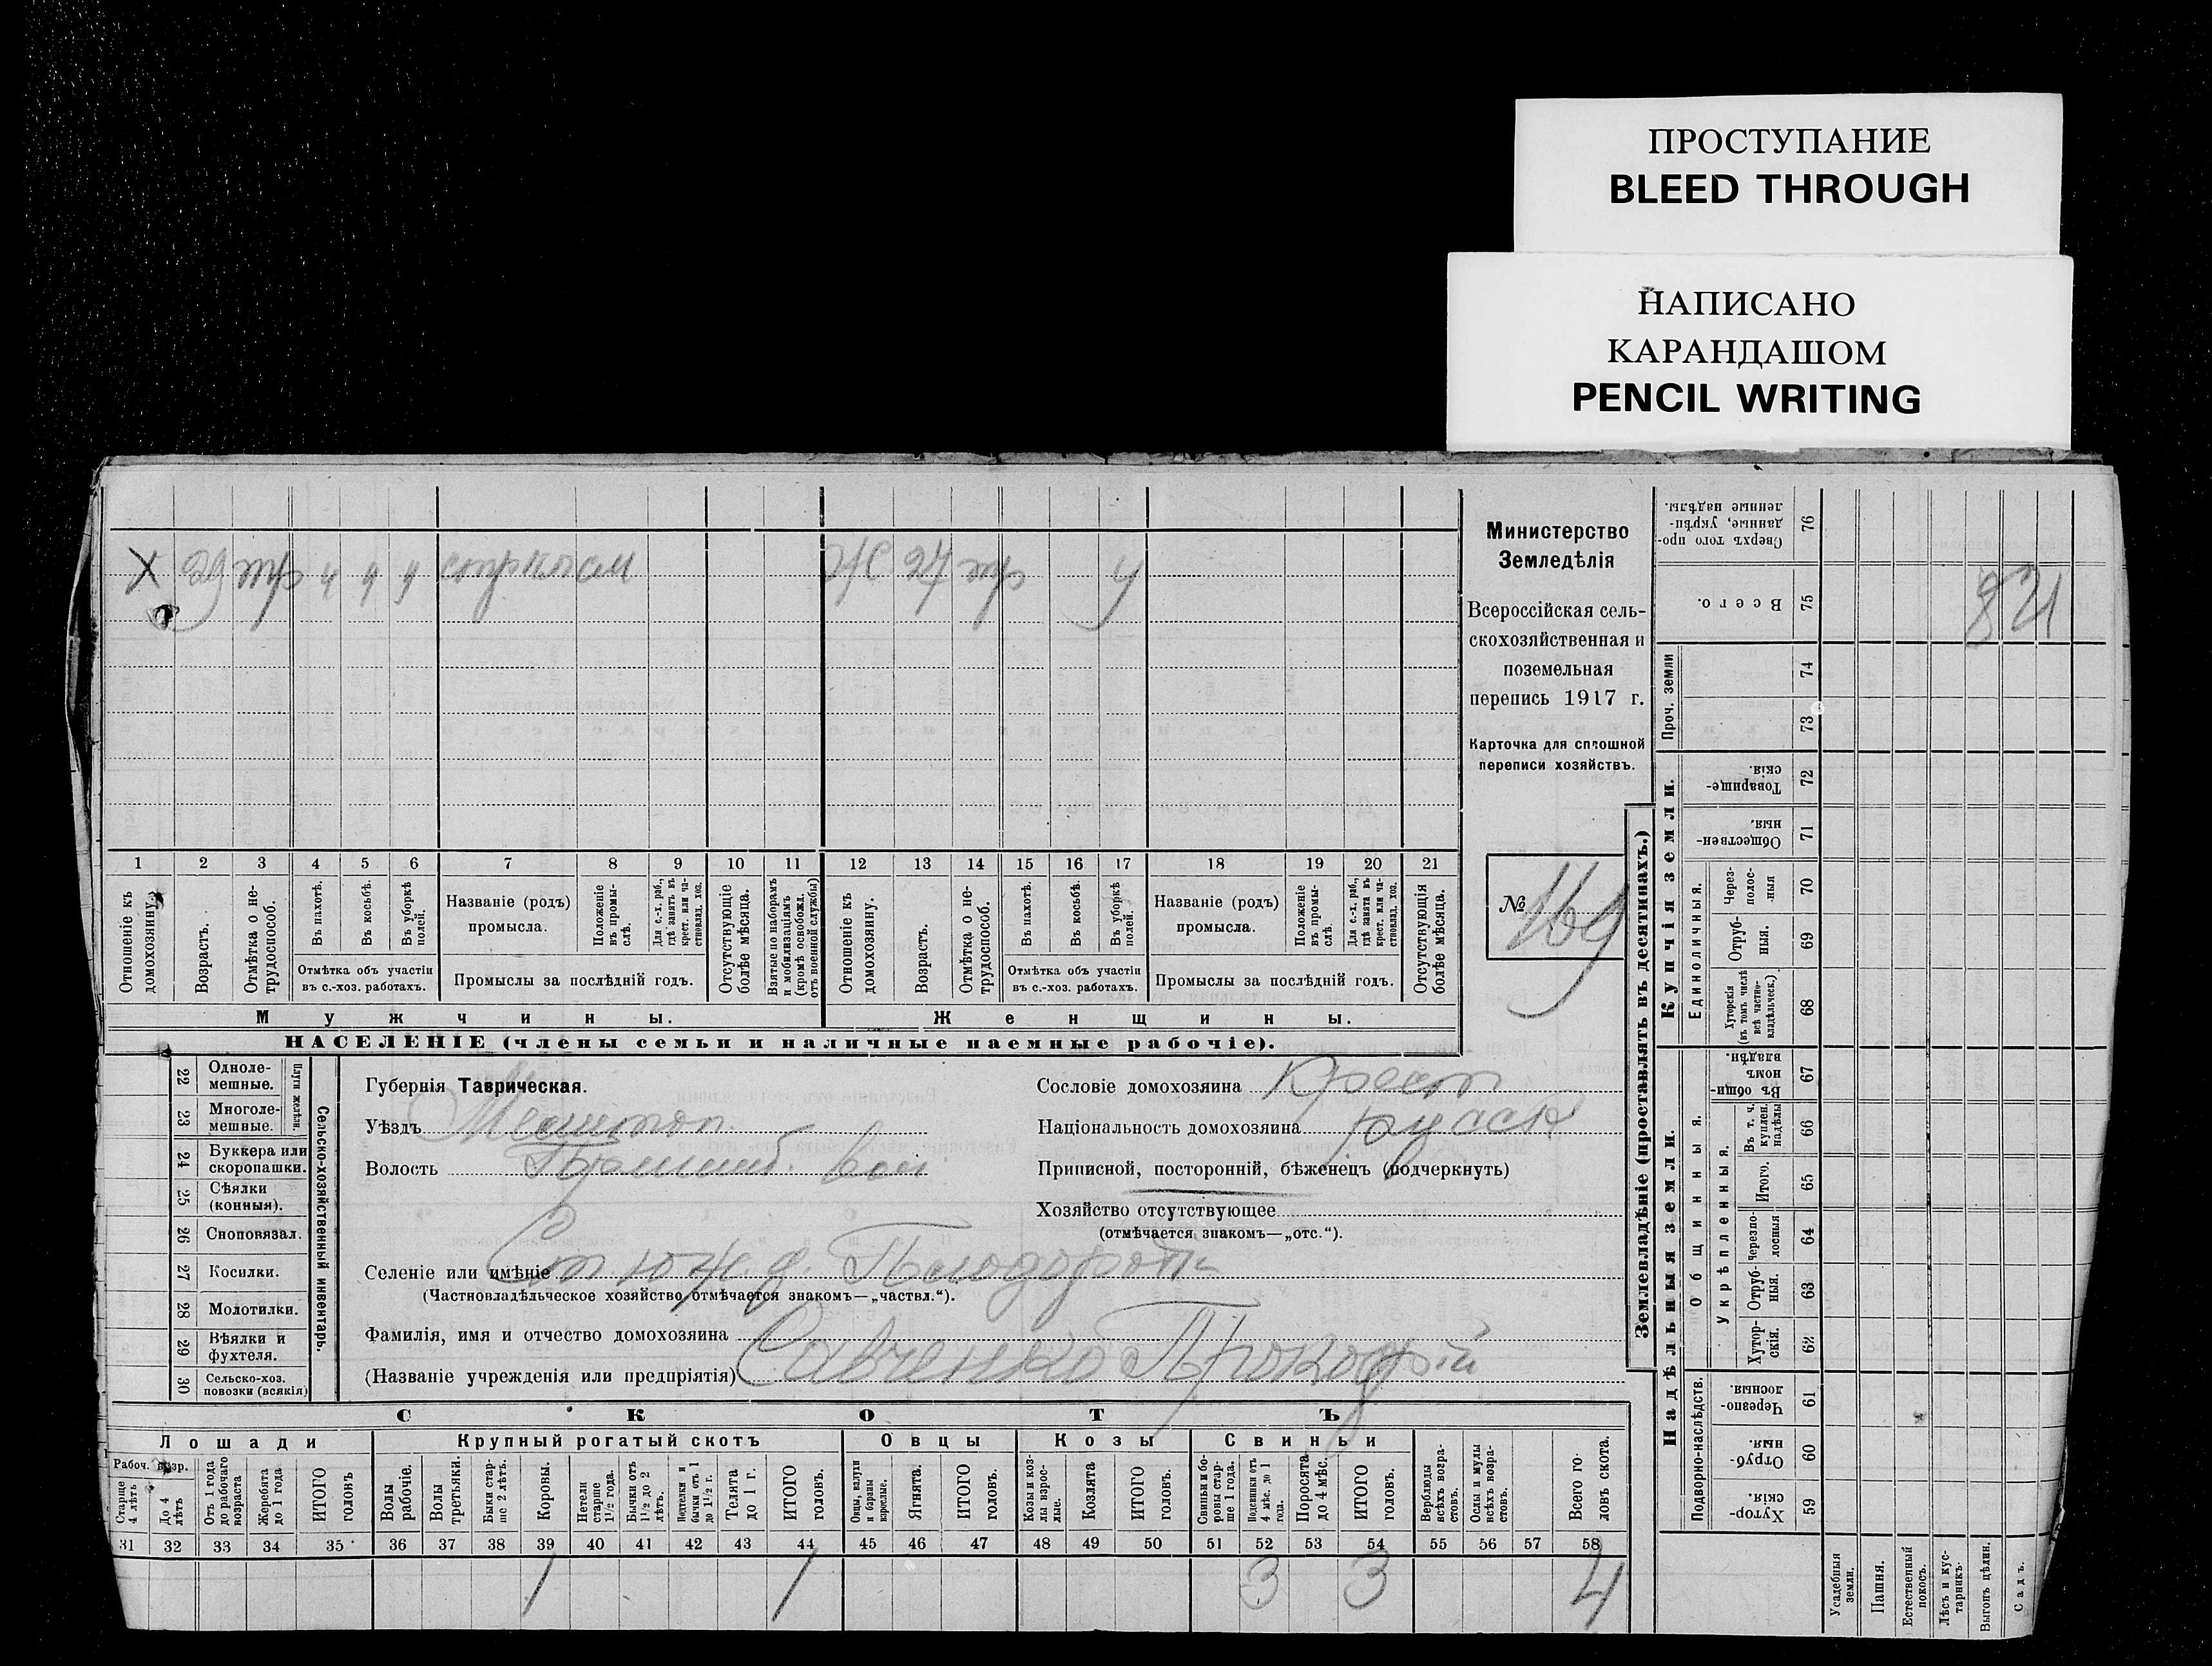 ПРОСТУПАНИЕ
BLEED THROUGH
НАПИСАНО
КАРАНДАШОМ
PENCIL WRITING
Министерство
Земледѣлія
Всероссійская сель-
скохозяйственная и
поземельная
перепись 1917 г.
Карточка для сплошной
переписи хозяйствъ.
№ 169
Х тр
Ж 27 тр у
1 2 3 4 5 6 7 8 9 10 11 12 13 14 15 16 17 18 19 20 21
Отношеніе къ домохозяину.
Возрастъ.
Отмѣтка о не-трудоспособ.
Въ пахотѣ.
Въ косьбѣ.
Въ уборкѣ полей.
Отмѣтка объ участіи
въ с.-хоз. работахъ.
Названіе (родъ)
промысла.
Положеніе въ промы-слѣ.
Для с.-х. раб., гдѣ занятъ въ крест. или ча-стновлад. хоз.
Промыслы за послѣдній годъ.
Отсутствующіе болѣе мѣсяца.
Взятые по наборамъ и мобилизаціямъ (кромѣ освобожд. отъ военной службы)
Отношеніе къ домохозяину.
Возрастъ.
Отмѣтка о не-трудоспособ.
Въ пахотѣ.
Въ косьбѣ.
Въ уборкѣ полей.
Отмѣтка объ участіи
въ с.-хоз. работахъ.
Названіе (родъ)
промысла.
Положеніе въ промы-слѣ.
Для с.-х. раб., гдѣ занята въ крест. или ча-стновлад. хоз.
Промыслы за послѣдній годъ.
Отсутствующія болѣе мѣсяца.
Мужчины.
Женщины.
НАСЕЛЕНІЕ (члены семьи и наличные наемные рабочіе).
22 Одноле-мешные.
23 Многоле-мешные.
Плуги желѣзн.
24 Буккера или скоропашки.
25 Сѣялки (конныя).
26 Сноповязал.
27 Косилки.
28 Молотилки.
29 Вѣялки и фухтеля.
30 Сельско-хоз. повозки (всякія)
Сельско-хозяйственный инвентарь.
Губернія Таврическая.
Уѣздъ Мелитоп.
Волость
Селеніе или имѣніе Ст. Ю.Ж.д. Плодородіе
(Частновладѣльческое хозяйство отмѣчается знакомъ—„частвл.“).
Фамилія, имя и отчество домохозяина
(Названіе учрежденія или предпріятія) Савченко Прокофій
Сословіе домохозяина Крест
Національность домохозяина русск
Приписной, посторонній, бѣженецъ (подчеркнуть)
Хозяйство отсутствующее
(отмѣчается знакомъ—„отс.“).
СКОТЪ
Лошади
Крупный рогатый скотъ
Овцы
Козы
Свиньи
Рабоч. возр.
Старше 4 лѣтъ
До 4 лѣтъ
Отъ 1 года до рабочаго возраста
Жеребята до 1 года.
ИТОГО головъ
Волы рабочіе.
Волы третьяки.
Быки стар-ше 2 лѣтъ.
Коровы.
Нетели старше 1½ года.
Бычки отъ 1½ до 2 лѣтъ.
бычки отъ 1 до 1½ г.
Телята до 1 г.
ИТОГО головъ.
Овцы, валухи и бараны взрослые.
Ягнята.
ИТОГО головъ.
Козы и коз-лы взрос-лые.
Козлята
ИТОГО головъ.
Свиньи и бо-ровы стар-ше 1 года.
Подсвинки отъ 4 мѣс. до 1 года.
Поросята до 4 мѣс.
ИТОГО головъ.
Верблюды всѣхъ возра-стовъ.
Ослы и мулы всѣхъ возра-стовъ.
Всего го-ловъ скота.
31 32 33 34 35 36 37 38 39 40 41 42 43 44 45 46 47 48 49 50 51 52 53 54 55 56 57 58
1 1 3 3 4
Землевладѣніе (проставлять въ десятинахъ.)
Сверхъ того про-данные, укрѣп-ленные надѣлы. 76
Всего. 75
821
Проч. земли 74
73
Купчія земли.
Товарище-скія. 72
Обществен-ныя. 71
Единоличныя.
Через-полос-ныя 70
Отруб-ныя. 69
Хуторскія (въ томъ числѣ всѣ частно-владѣльческ.) 68
Надѣльныя земли.
Общинныя.
Въ общин-номъ владѣн. 67
Укрѣпленныя.
Въ т. ч. куплен. надѣлы 66
Итого. 65
Черезпо-лосныя 64
Отруб-ныя. 63
Хутор-скія. 62
Подворно-наслѣдств.
Черезпо-лосныя. 61
Отруб-ныя. 60
Хутор-скія. 59
Усадебныя земли.
Пашня.
Естественный покосъ.
Лѣсъ и кус-тарникъ.
Выгонъ цѣлин.
Садъ.